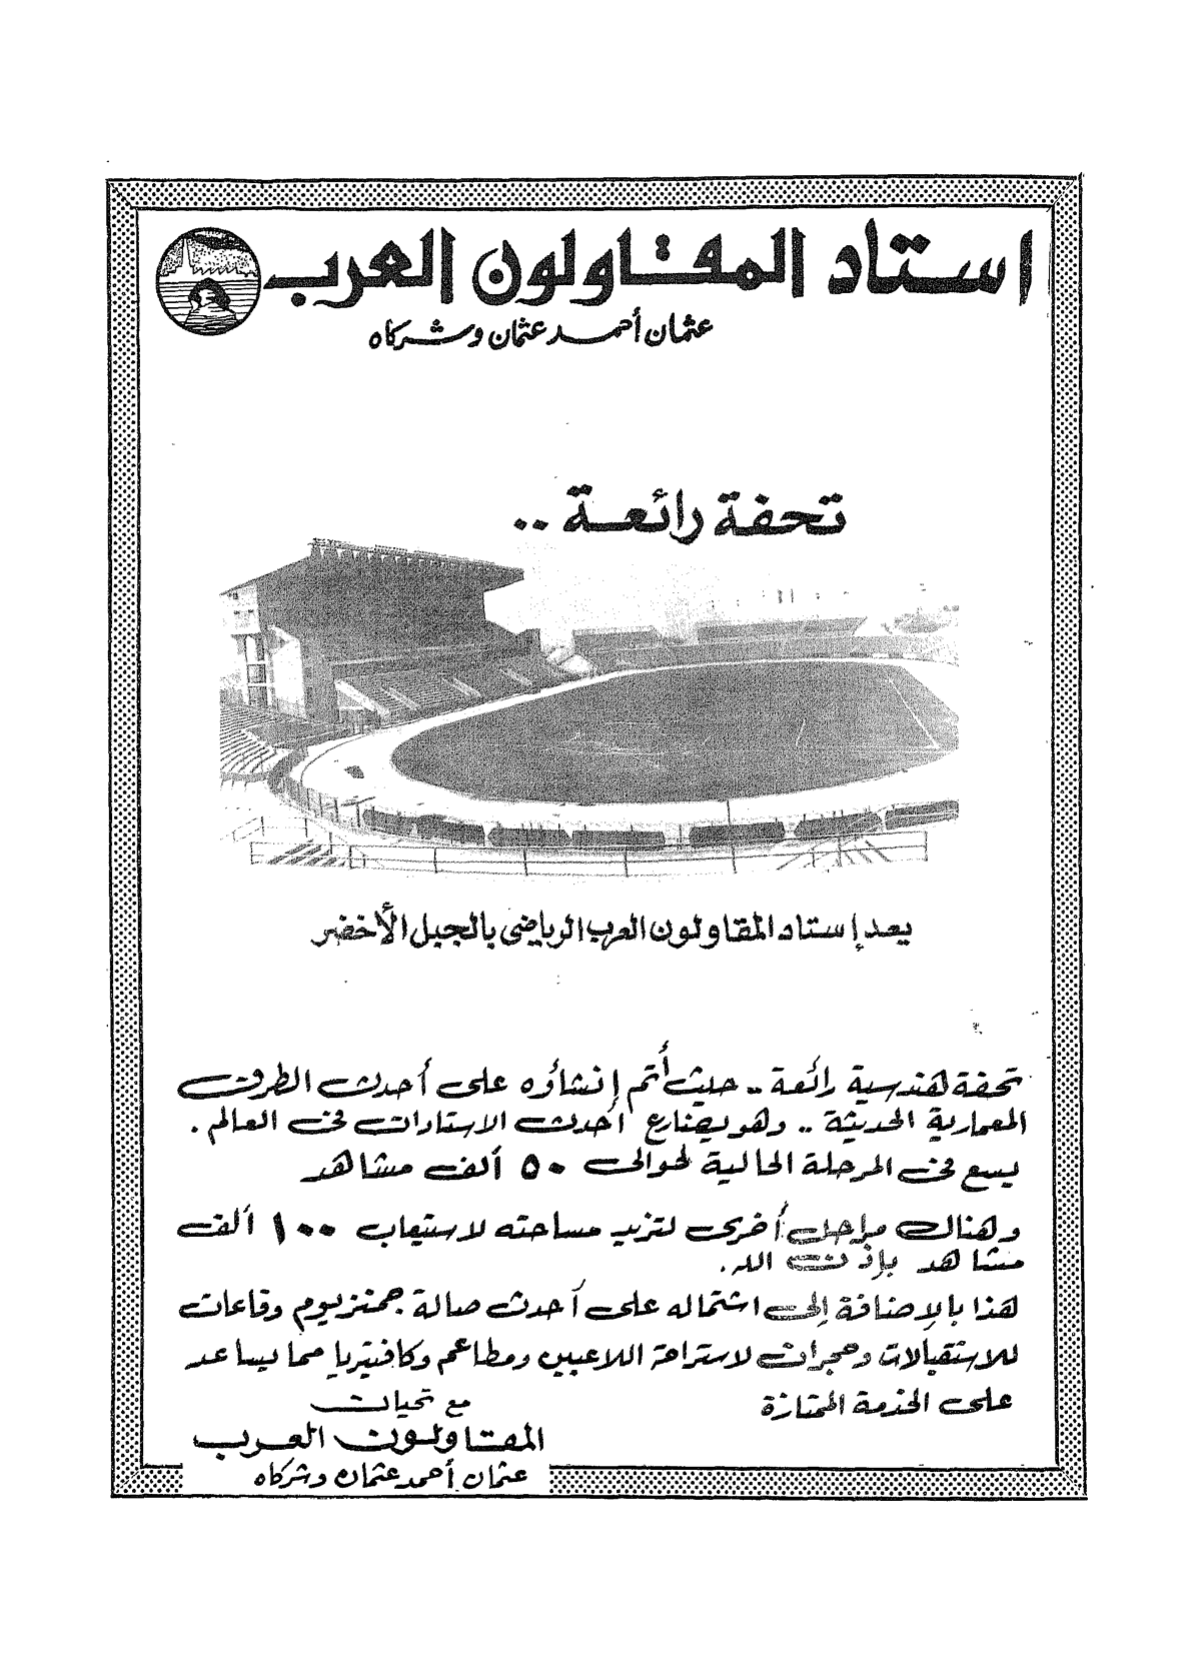 استاد المقاولون العرب
عثمان أحمد عثمان وشركاه
تحفة رائعة ..
يعد إستاد المقاولون العرب الرياضى بالجبل الأخضر
تحفة هندسية رائعة .. حيث أتم إنشاؤه على أحدث الطرق
المعمارية الحديثة .. وهو يضارع أحدث الاستادات فى العالم .
يسع فى المرحلة الحالية لحوالى ٥٠ ألف مشاهد
وهناك مراحل أخرى لتزيد مساحته لاستيعاب ١٠٠ ألف
مشاهد بإذن الله .
هذا بالإضافة إلى اشتماله على أحدث صالة جمنزيوم وقاعات
للاستقبالات وحجرات لاستراحة اللاعبين ومطاعم وكافيتريا مما يساعد
على الخدمة الممتازة
مع تحيات
المقاولون العرب
عثمان أحمد عثمان وشركاه